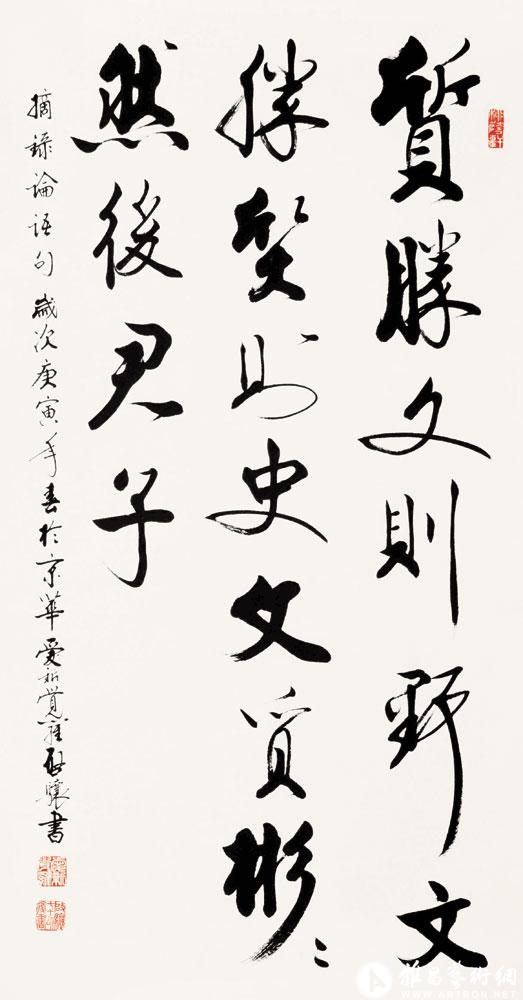 質勝文則野文
勝質則史文質彬〻
然後君子
摘録論語句歲次庚寅年春於京華愛新覺羅啟驤書
雅昌藝術網
WWW.ARTRON.NET